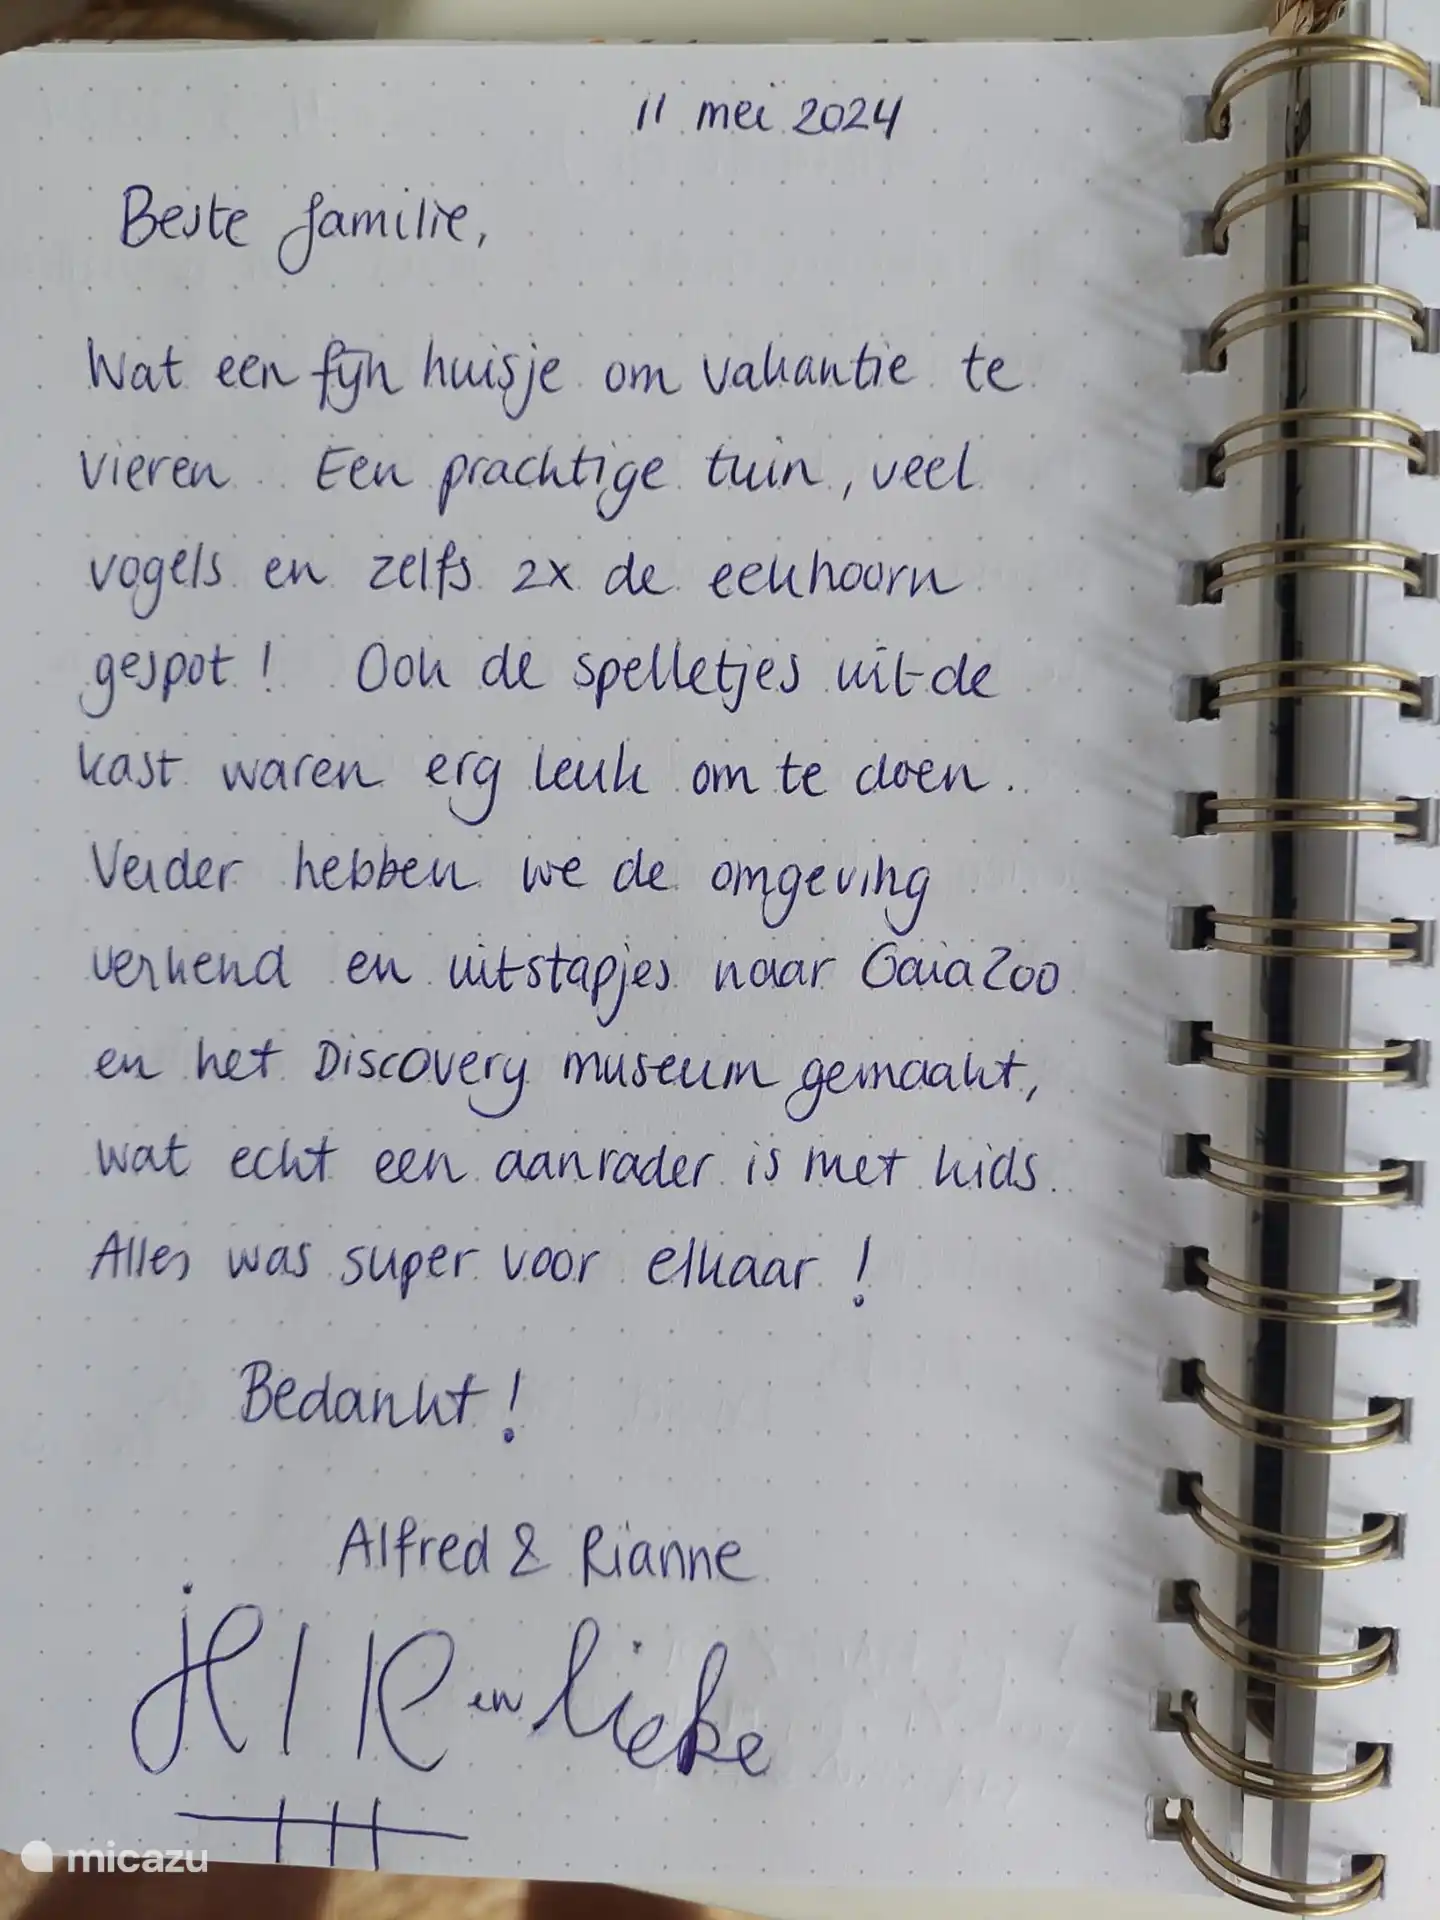 11 mei 2024
Beste familie,
Wat een fijn huisje om vakantie te
vieren. Een prachtige tuin, veel
vogels en zelfs 2x de eekhoorn
gespot! Ook de spelletjes uit de
kast waren erg leuk om te doen.
Verder hebben we de omgeving
verkend en uitstapjes naar GaiaZoo
en het Discovery museum gemaakt,
wat echt een aanrader is met kids.
Alles was super voor elkaar!
Bedankt!
Alfred & Rianne
en Lieke
micazu